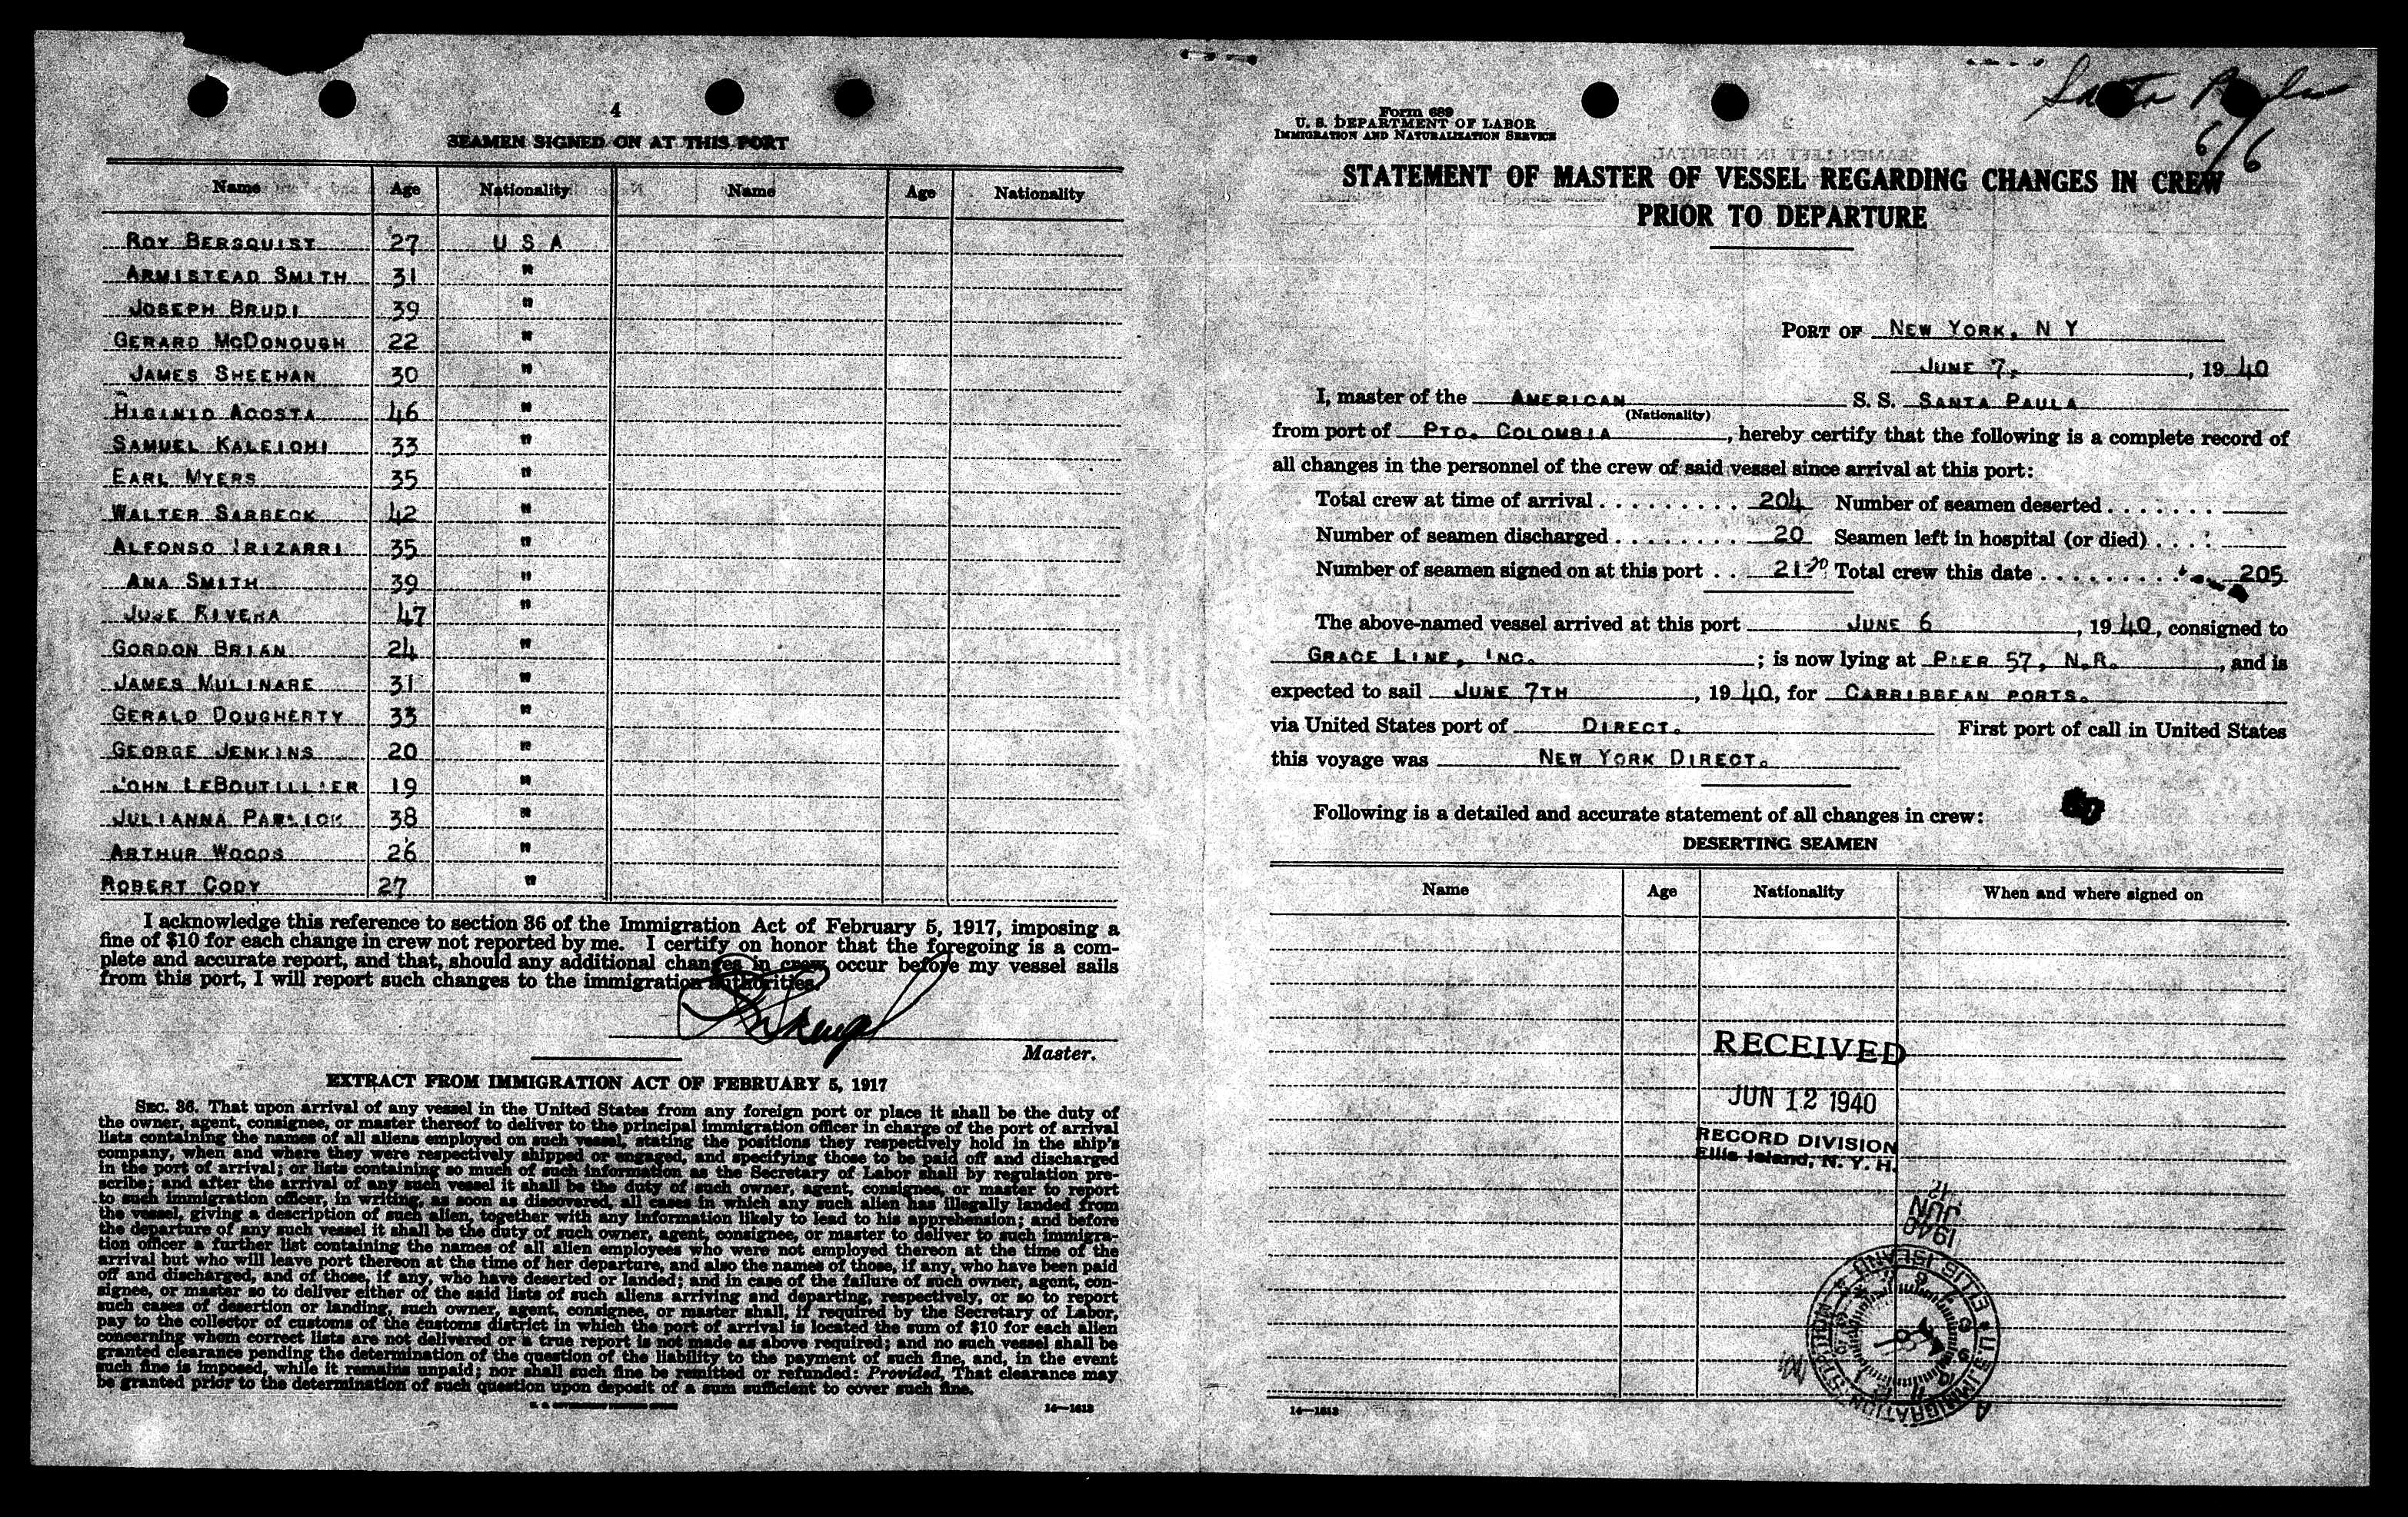 4
SEAMEN SIGNED ON AT THIS PORT
Name Age Nationality Name Age Nationality
ROY BERSQUIST 27 U S A
ARMISTEAD SMITH 31 "
JOSEPH BRUDI 39 "
GERARD MCDONOUGH 22 "
JAMES SHEEHAN 30 "
HIGINIO ACOSTA 46 "
SAMUEL KALEIOHI 33 "
EARL MYERS 35 "
WALTER SARBECK 42 "
ALFONSO IRIZARRI 35 "
ANA SMITH 39 "
JOSE RIVERA 47 "
GORDON BRIAN 24 "
JAMES MULINARE 31 "
GERALD DOUGHERTY 33 "
GEORGE JENKINS 20 "
JOHN LEBOUTILLIER 19 "
JULIANNA 38 "
ARTHUR WOODS 26 "
ROBERT CODY 27 "
I acknowledge this reference to section 36 of the Immigration Act of February 5, 1917, imposing a
fine of $10 for each change in crew not reported by me. I certify on honor that the foregoing is a com-
plete and accurate report, and that, should any additional changes in crew occur before my vessel sails
from this port, I will report such changes to the immigration authorities.
Master.
EXTRACT FROM IMMIGRATION ACT OF FEBRUARY 5, 1917
SEC. 36. That upon arrival of any vessel in the United States from any foreign port or place it shall be the duty of
the owner, agent, consignee, or master thereof to deliver to the principal immigration officer in charge of the port of arrival
lists containing the names of all aliens employed on such vessel, stating the positions they respectively hold in the ship's
company, when and where they were respectively shipped or engaged, and specifying those to be paid off and discharged
in the port of arrival; or lists containing so much of such information as the Secretary of Labor shall by regulation pre-
scribe; and after the arrival of any such vessel it shall be the duty of such owner, agent, consignee, or master to report
to such immigration officer, in writing, as soon as discovered, all cases in which any such alien has illegally landed from
the vessel, giving a description of such alien, together with any information likely to lead to his apprehension; and before
the departure of any such vessel it shall be the duty of such owner, agent, consignee, or master to deliver to such immigra-
tion officer a further list containing the names of all alien employees who were not employed thereon at the time of the
arrival but who will leave port thereon at the time of her departure, and also the names of those, if any, who have been paid
off and discharged, and of those, if any, who have deserted or landed; and in case of the failure of such owner, agent, con-
signee, or master so to deliver either of the said lists of such aliens arriving and departing, respectively, or so to report
such cases of desertion or landing, such owner, agent, consignee, or master shall, if required by the Secretary of Labor,
pay to the collector of customs of the customs district in which the port of arrival is located the sum of $10 for each alien
concerning whom correct lists are not delivered or a true report is not made as above required; and no such vessel shall be
granted clearance pending the determination of the question of the liability to the payment of such fine, and, in the event
such fine is imposed, while it remains unpaid; nor shall such fine be remitted or refunded: Provided, That clearance may
be granted prior to the determination of such question upon deposit of a sum sufficient to cover such fine.
14—1613
Santa Paula
6/6
Form 689
U. S. DEPARTMENT OF LABOR
IMMIGRATION AND NATURALIZATION SERVICE
STATEMENT OF MASTER OF VESSEL REGARDING CHANGES IN CREW
PRIOR TO DEPARTURE
PORT OF NEW YORK, N Y
JUNE 7, , 1940
I, master of the AMERICAN S. S. SANTA PAULA
(Nationality)
from port of PTO. COLOMBIA , hereby certify that the following is a complete record of
all changes in the personnel of the crew of said vessel since arrival at this port:
Total crew at time of arrival . . . . . . . . . 204 Number of seamen deserted . . . . . . .
Number of seamen discharged . . . . . . . . 20 Seamen left in hospital (or died) . . . .
Number of seamen signed on at this port . . 21 20 Total crew this date . . . . . . . . . 205
The above-named vessel arrived at this port JUNE 6 , 1940, consigned to
GRACE LINE, INC. ; is now lying at PIER 57, N.R. , and is
expected to sail JUNE 7TH , 1940, for CARRIBBEAN PORTS.
via United States port of DIRECT. First port of call in United States
this voyage was NEW YORK DIRECT.
Following is a detailed and accurate statement of all changes in crew:
DESERTING SEAMEN
Name Age Nationality When and where signed on
RECEIVED
JUN 12 1940
RECORD DIVISION
Ellis Island, N. Y. H.
12
JUN
1940
U.S. IMMIGRATION ELLIS ISLAND
14—1613